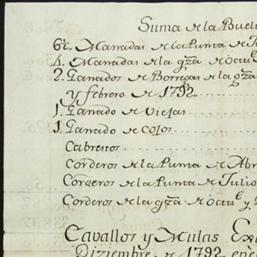 Suma de la Buelt
6„ Manadas de la Punta de
4. Manadas de la gza de Octue
2. Ganados de Borregas de la gza
y febrero de 1792
1. Ganado de Viejas
1. Ganado de Cojos
Cabreitos
Corderos de la Punta de Abr
Corderos de la Punta de Julio
Corderos de la gza de Octue y
Cavallos y Mulas Ex
Diziembre de 1792 en